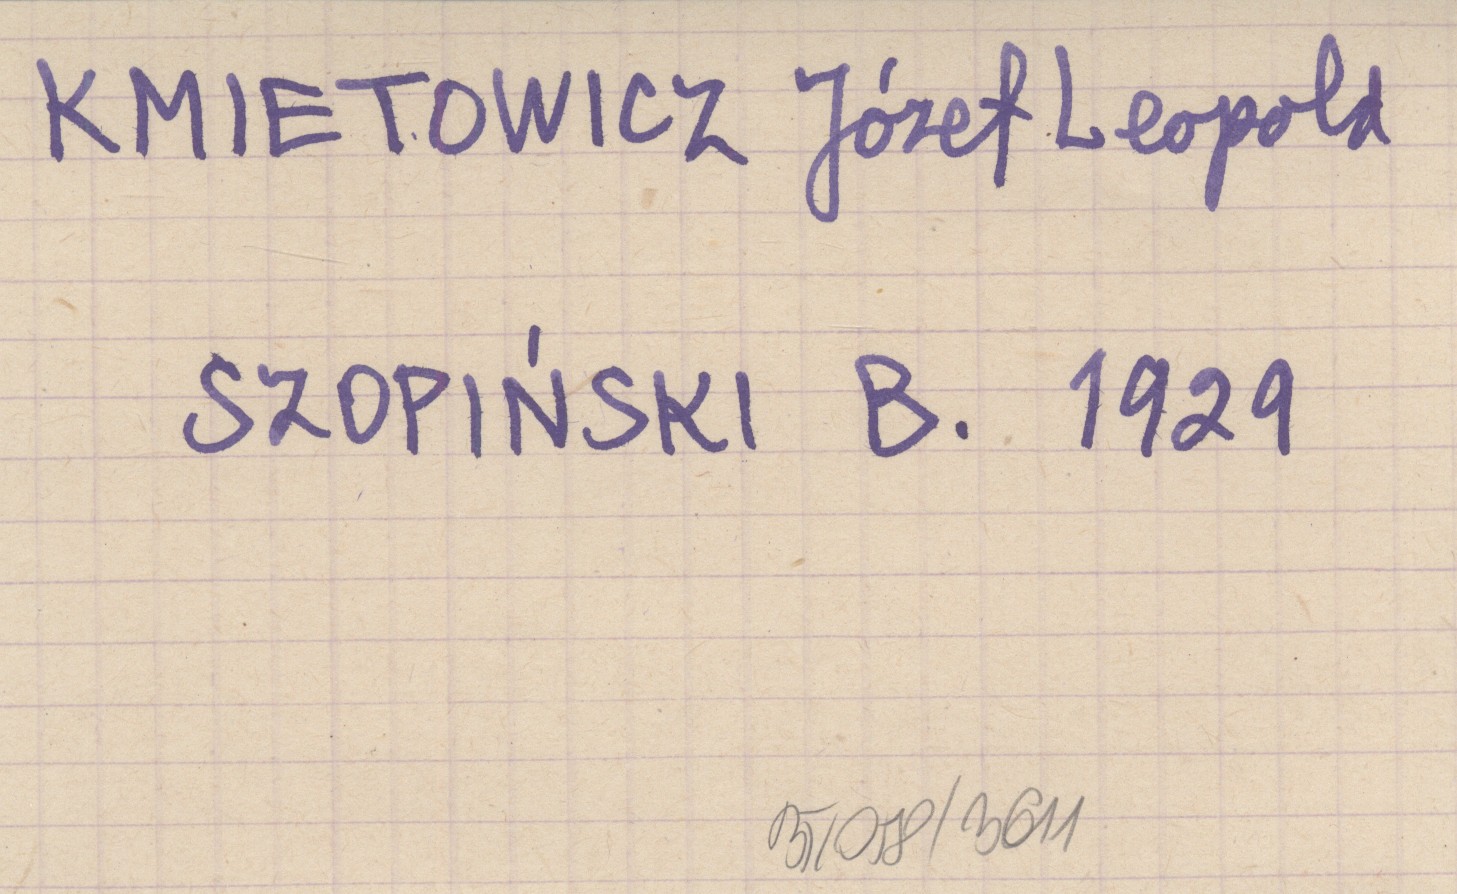 KMIETOWICZ Józef Leopold
SZOPIŃSKI B. 1929